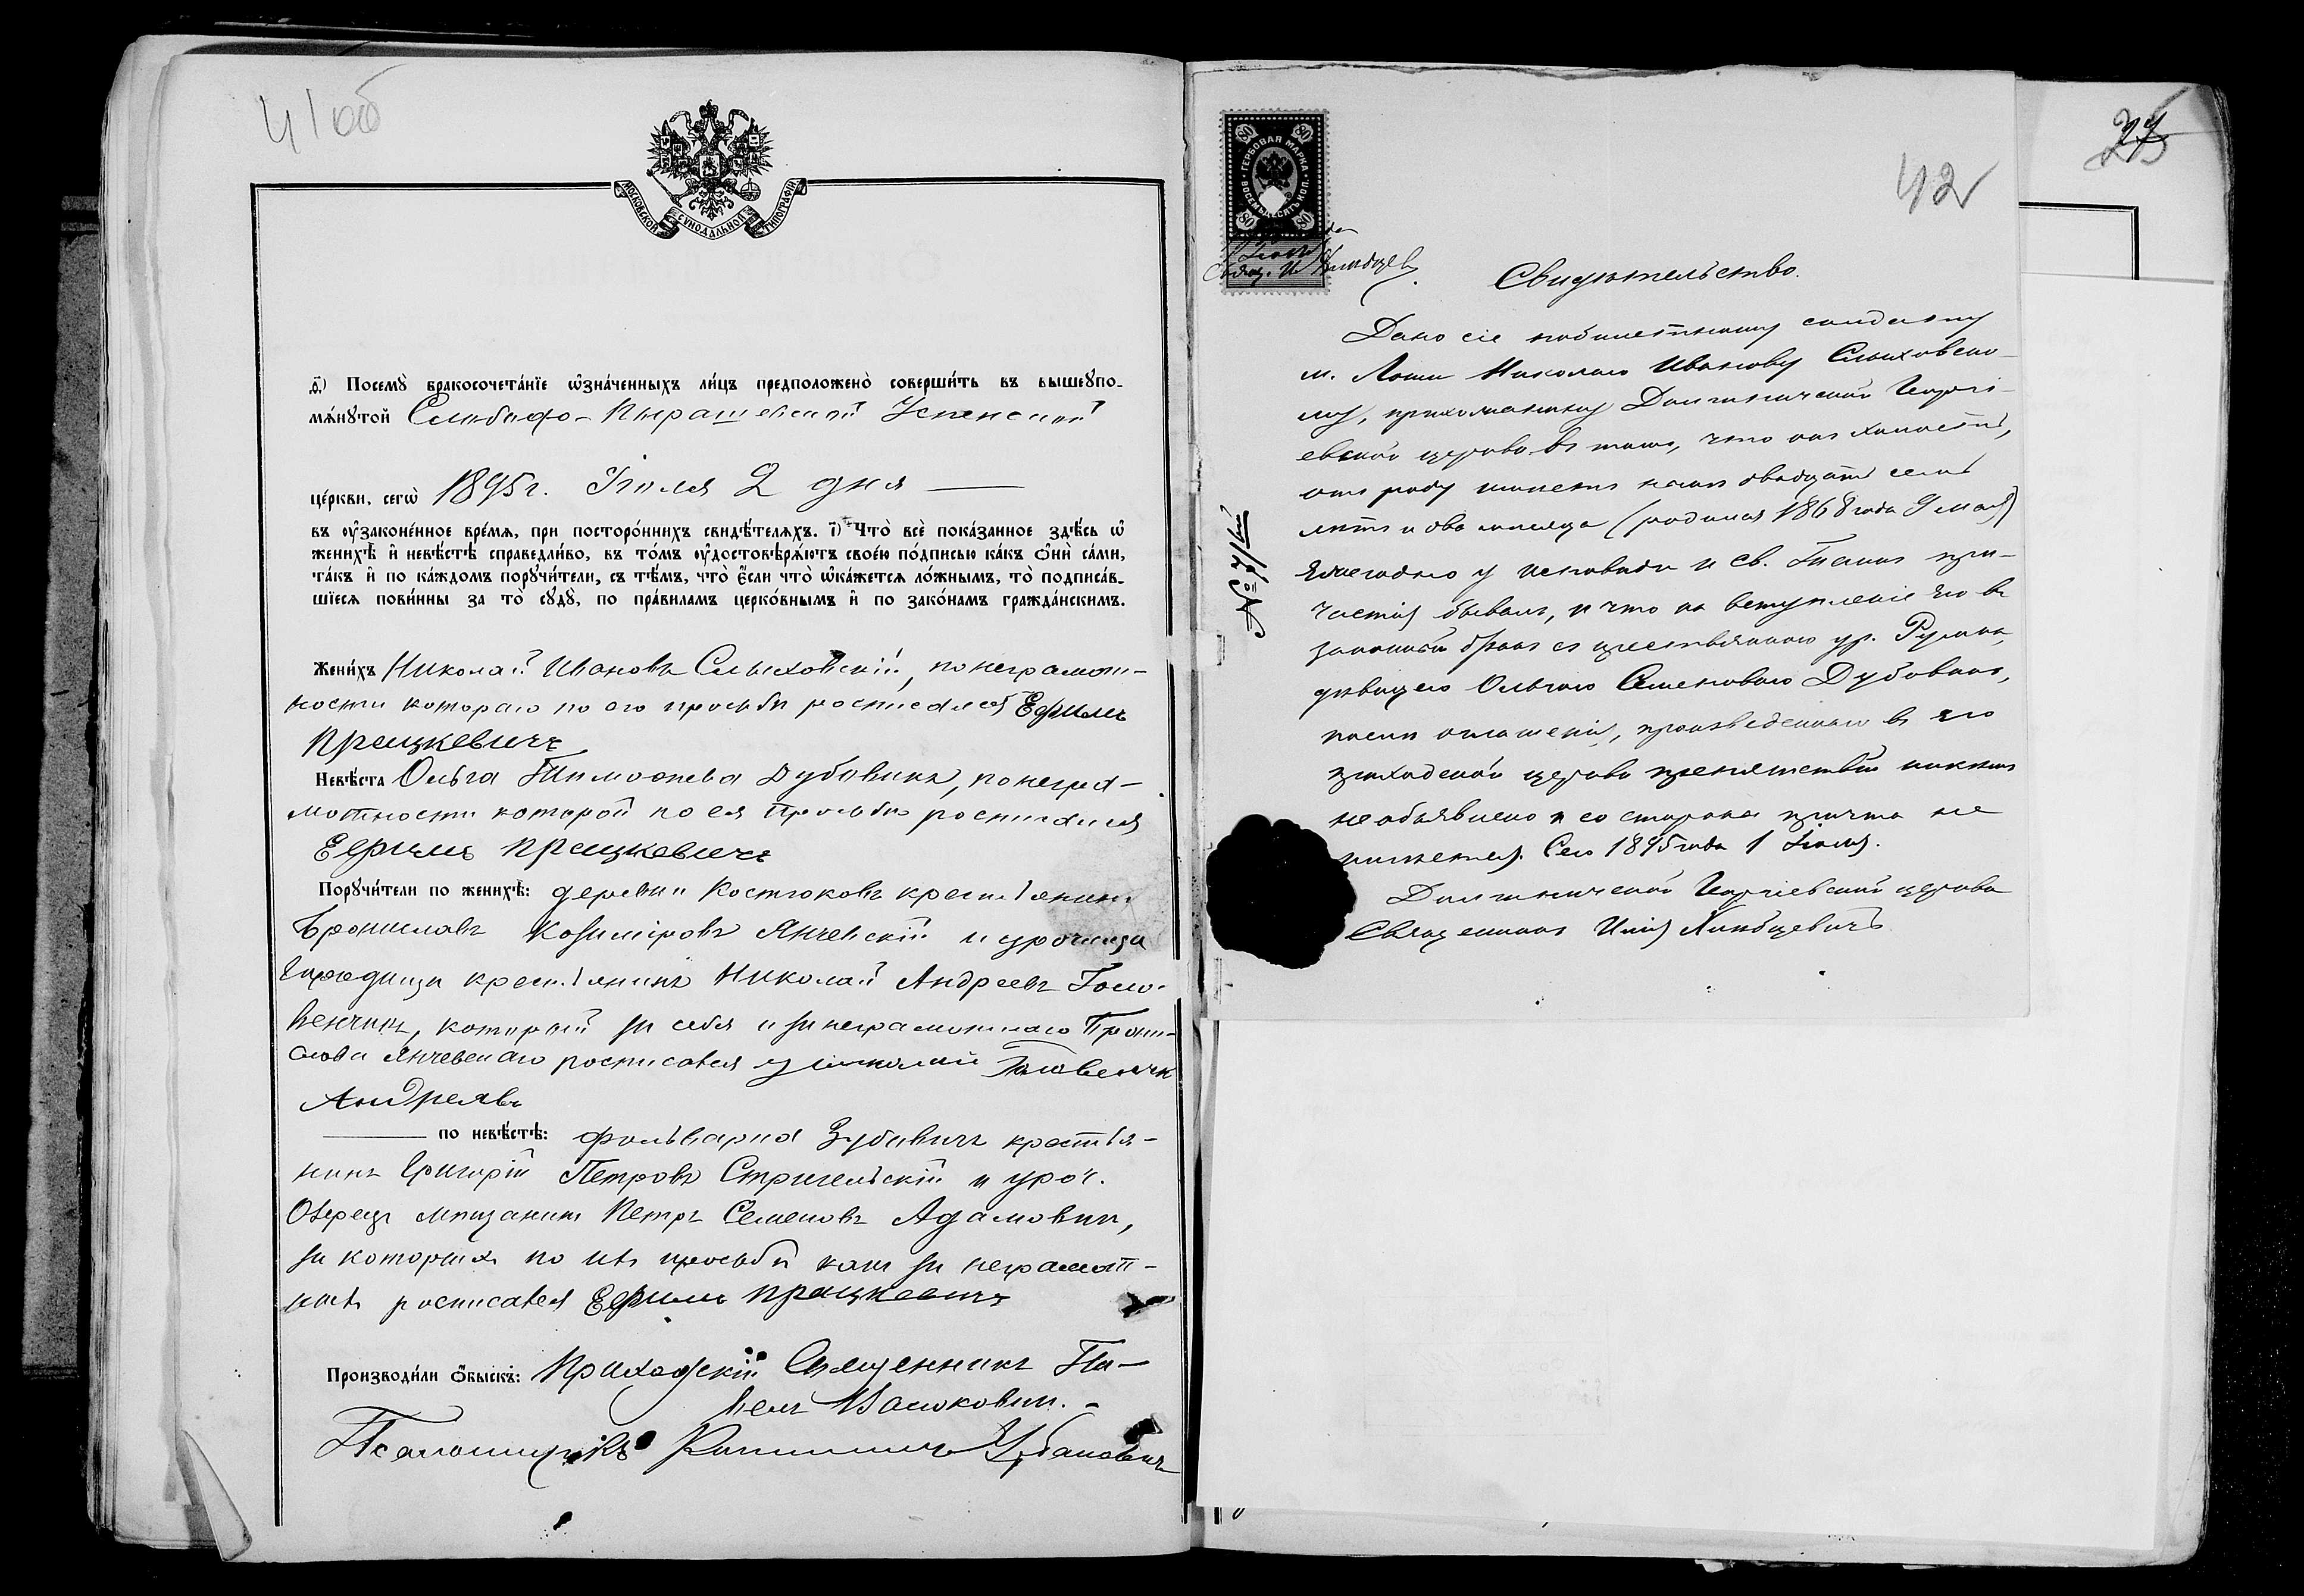 41 об
МОСКОВСКОЙ СѴНОДАЛЬНОЙ ТИПОГРАФІИ
д҃) Посемꙋ̀ бракосочета́нїе ѡ҆зна́ченныхъ ли́цъ предположено̀ соверши́ть въ вышеꙋпо-
мѧ́нꙋтой Слободо-Пырашевской Успенской
це́ркви, сегѡ̀ 1895 г. Іюля 2 дня
въ ᲂу҆законе́нное вре́мѧ, при посторо́ннихъ свидѣ́телѧхъ. і҃) Что̀ всѐ пока́занное здѣ́сь ѡ҆
женихѣ̀ и҆ невѣ́стѣ справедли́во, въ то́мъ ᲂу҆достовѣрѧ́ютъ свое́ю по́дписью ка́къ ѻ҆нѝ са́ми,
та́къ и҆ по ка́ждомъ порꙋчи́тели, съ тѣ́мъ, что̀ є҆́сли что̀ ѡ҆ка́жетсѧ ло́жнымъ, то̀ подписа́в-
шїесѧ пови́нны за то̀ сꙋдꙋ̀, по пра́виламъ церко́внымъ и҆ по зако́намъ гражда́нскимъ.
Жени́хъ Николай Ивановъ Слыховскій, по неграмот-
ности котораго по его просьбѣ росписался Ефимъ
Працкевичъ
Невѣ́ста Ольга Тимофеева Дубовикъ, по негра-
мотности которой по ея просьбѣ росписался
Ефимъ Працкевичъ
Порꙋчи́тели по женихѣ̀: деревни Костюковъ крестьянинъ
Брониславъ Козиміровъ Янчевскій и урочища
крестьянинъ Николай Андреевъ Голо-
венчикъ, который за себя и за неграмотнаго Брони-
слава Янчевскаго росписался Николай Головенчик
Андреявъ
по невѣ́стѣ: фольварка Зубовичъ крестья-
нинъ Григорій Петровъ Стригельскій и уроч.
мѣщанинъ Петръ Семеновъ Адамович,
за которыхъ по ихъ просьбѣ какъ за неграмот-
ныхъ росписался Ефимъ Працкевичъ
Производи́ли ѻ҆́быскъ: Приходскій Священникъ Па-
велъ
Псаломщикъ Урбановичъ
25
42
ГЕРБОВАЯ МАРКА
ВОСЕМЬДЕСЯТЪ КОП.
80 80 80 80
Свящ. И.
№ 7/
Свидѣтельство.
Дано сіе солдату
м. Николаю Иванову Слыховско-
му, прихожанину Георгі-
евской церкви въ томъ, что онъ холостъ,
отъ роду имѣетъ двадцать семь
лѣтъ и два мѣсяца (родился 1868 года 9 мая)
ежегодно у исповѣди и св. Таинъ при-
частія бывалъ, и что на вступленіе его въ
законный бракъ съ крестьянкою ур.
дѣвицею Ольгою Семеновою Дубовикъ,
послѣ оглашенія, произведеннаго въ его
приходской церкви препятствій никѣмъ
не объявлено и со стороны причта не
имѣется. Село 1895 года 1 Іюля.
Георгіевской церкви
Священникъ Хлѣбцевичъ